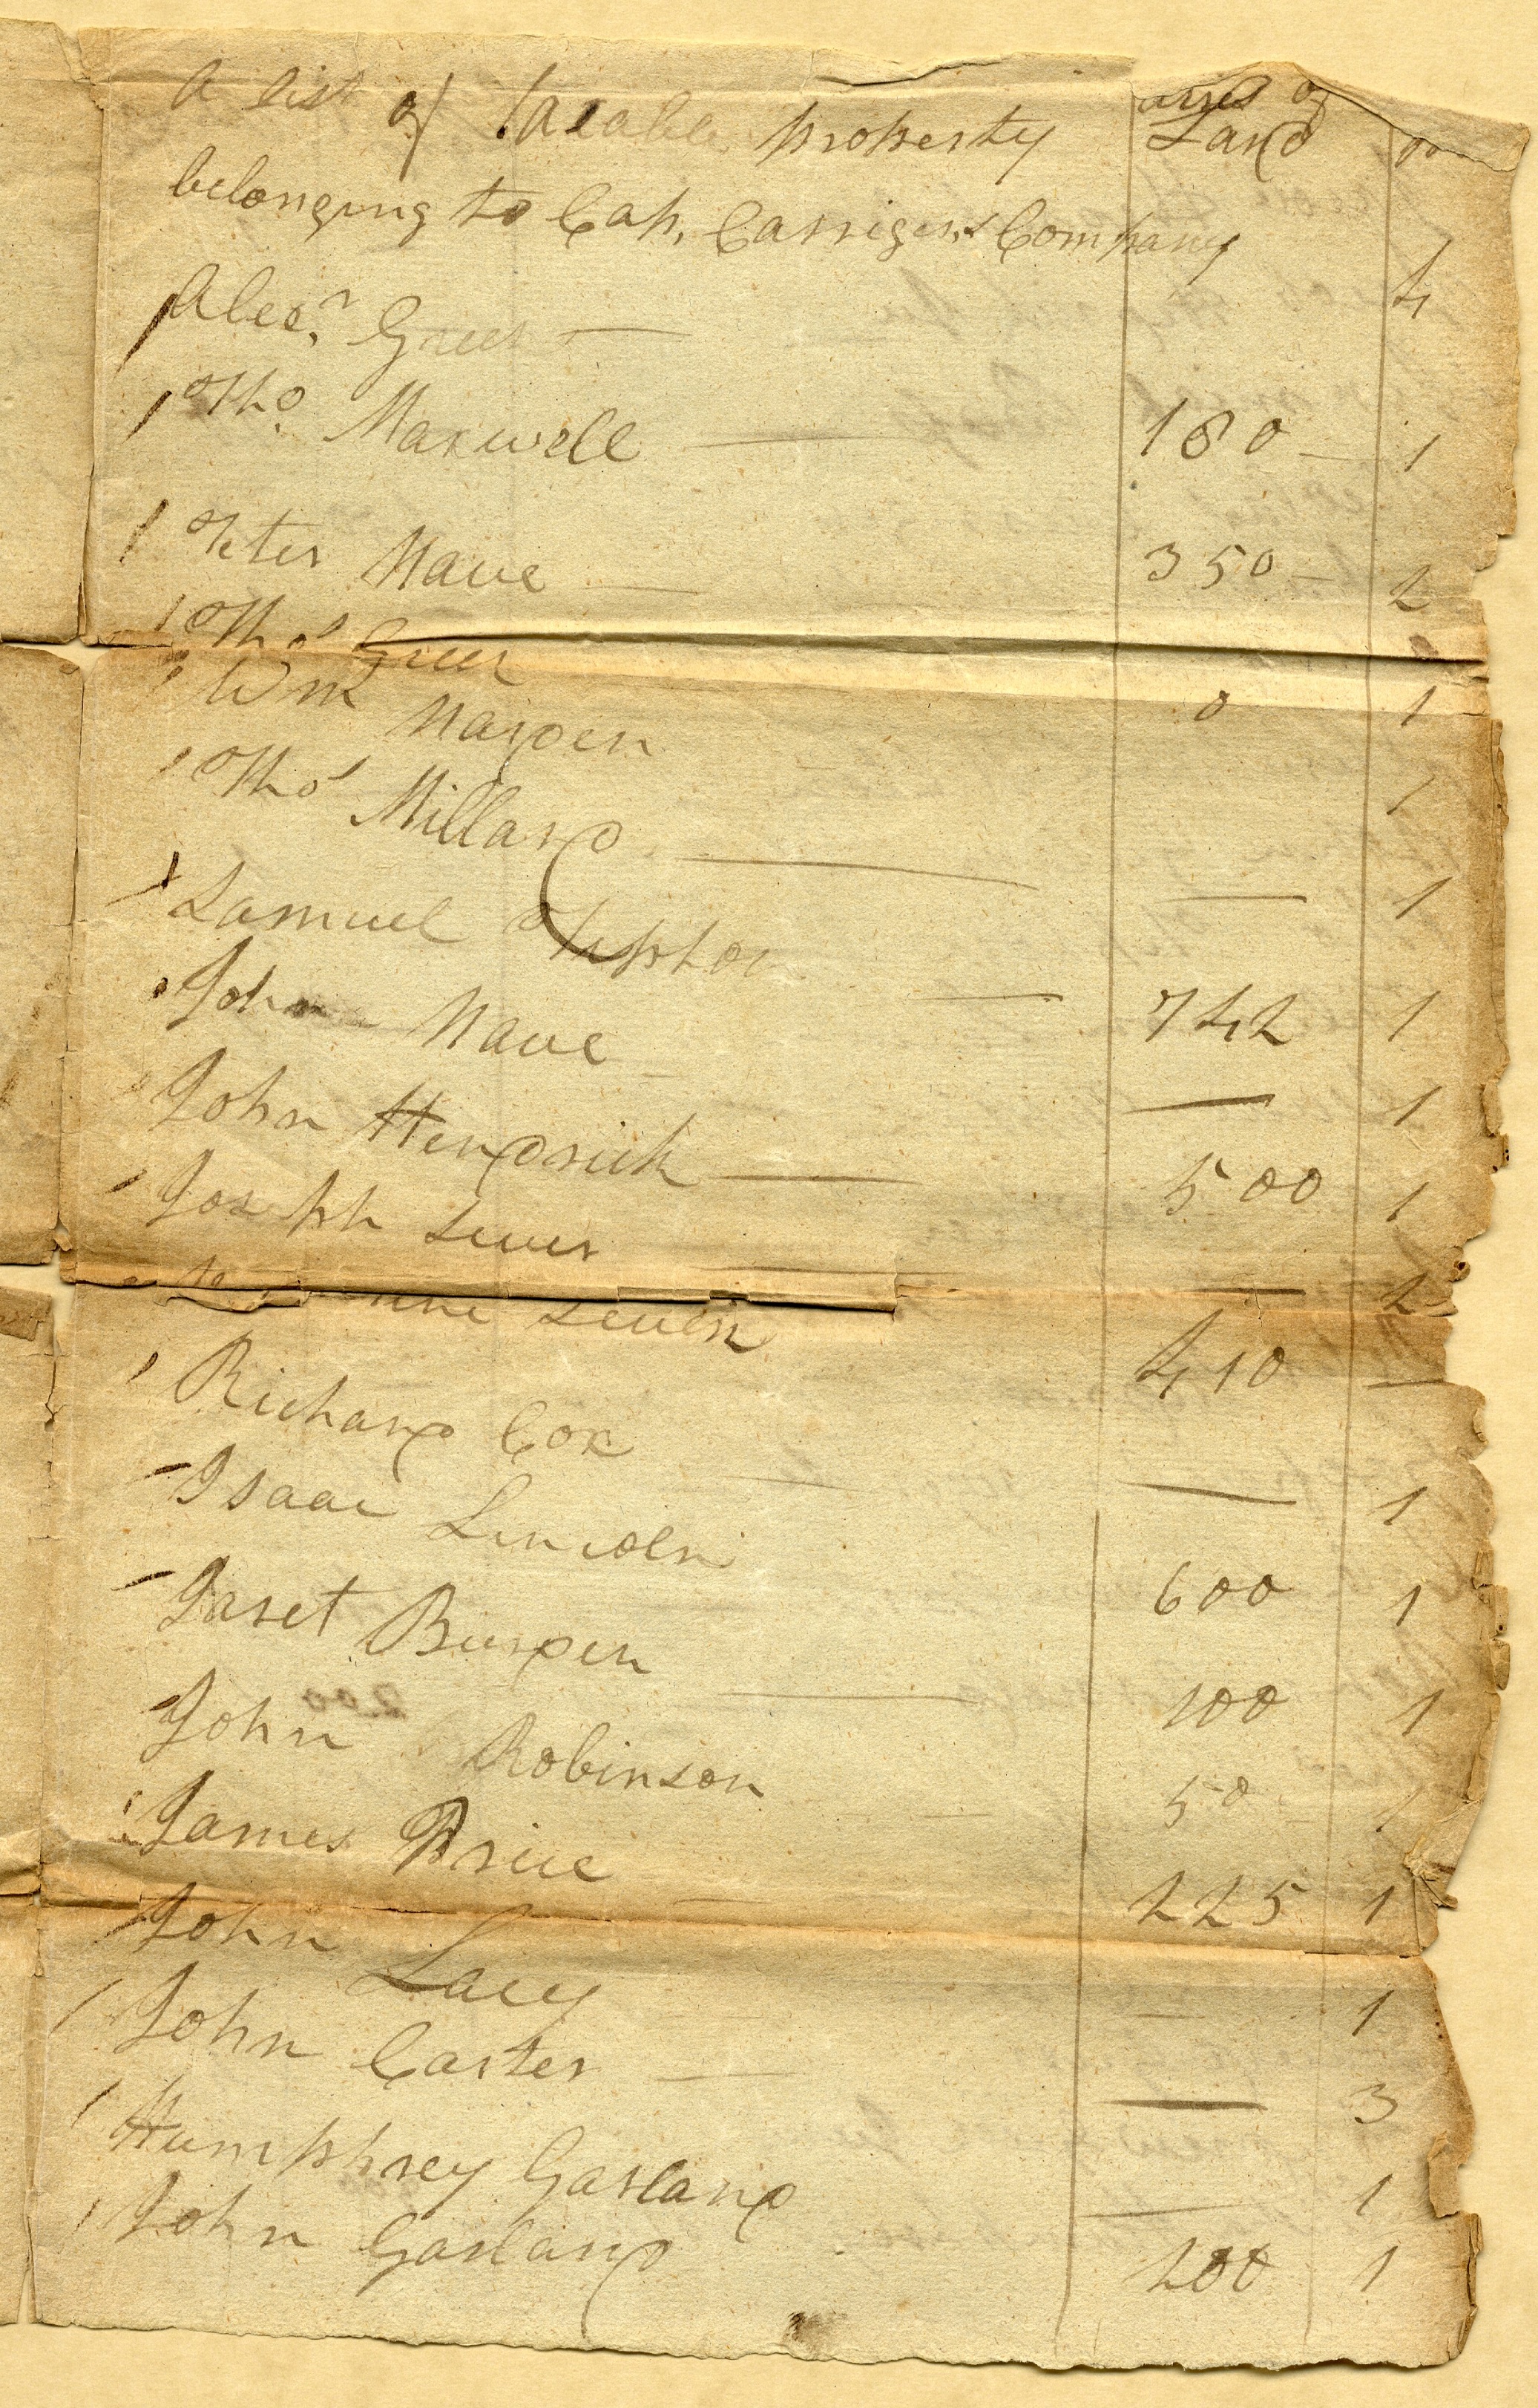 A list of taxable property | acres of Land | po
belonging to Cap. Carrigers Company
1 Alex.r Greer — 4
1 Tho. Maxwell — 180 — 1
1 Peter Nave — 350 — 2
1 Thos Greer 0 1
1 Wm Narden 1
1 Thos Millard — — 1
1 Samuel Tipton — 742 1
John Nave — 1
John Hendrick — 500 1
1 Joseph Sever — 2
Sever 410 —
1 Richard Cox — — 1
Isaac Lincoln 600 1
Jaret Burden — 100 1
John Robinson 50 1
James Price 225 1
John Lacy — 1
1 John Carter — — 3
1 Humphrey Garland — 1
1 John Garland 200 1